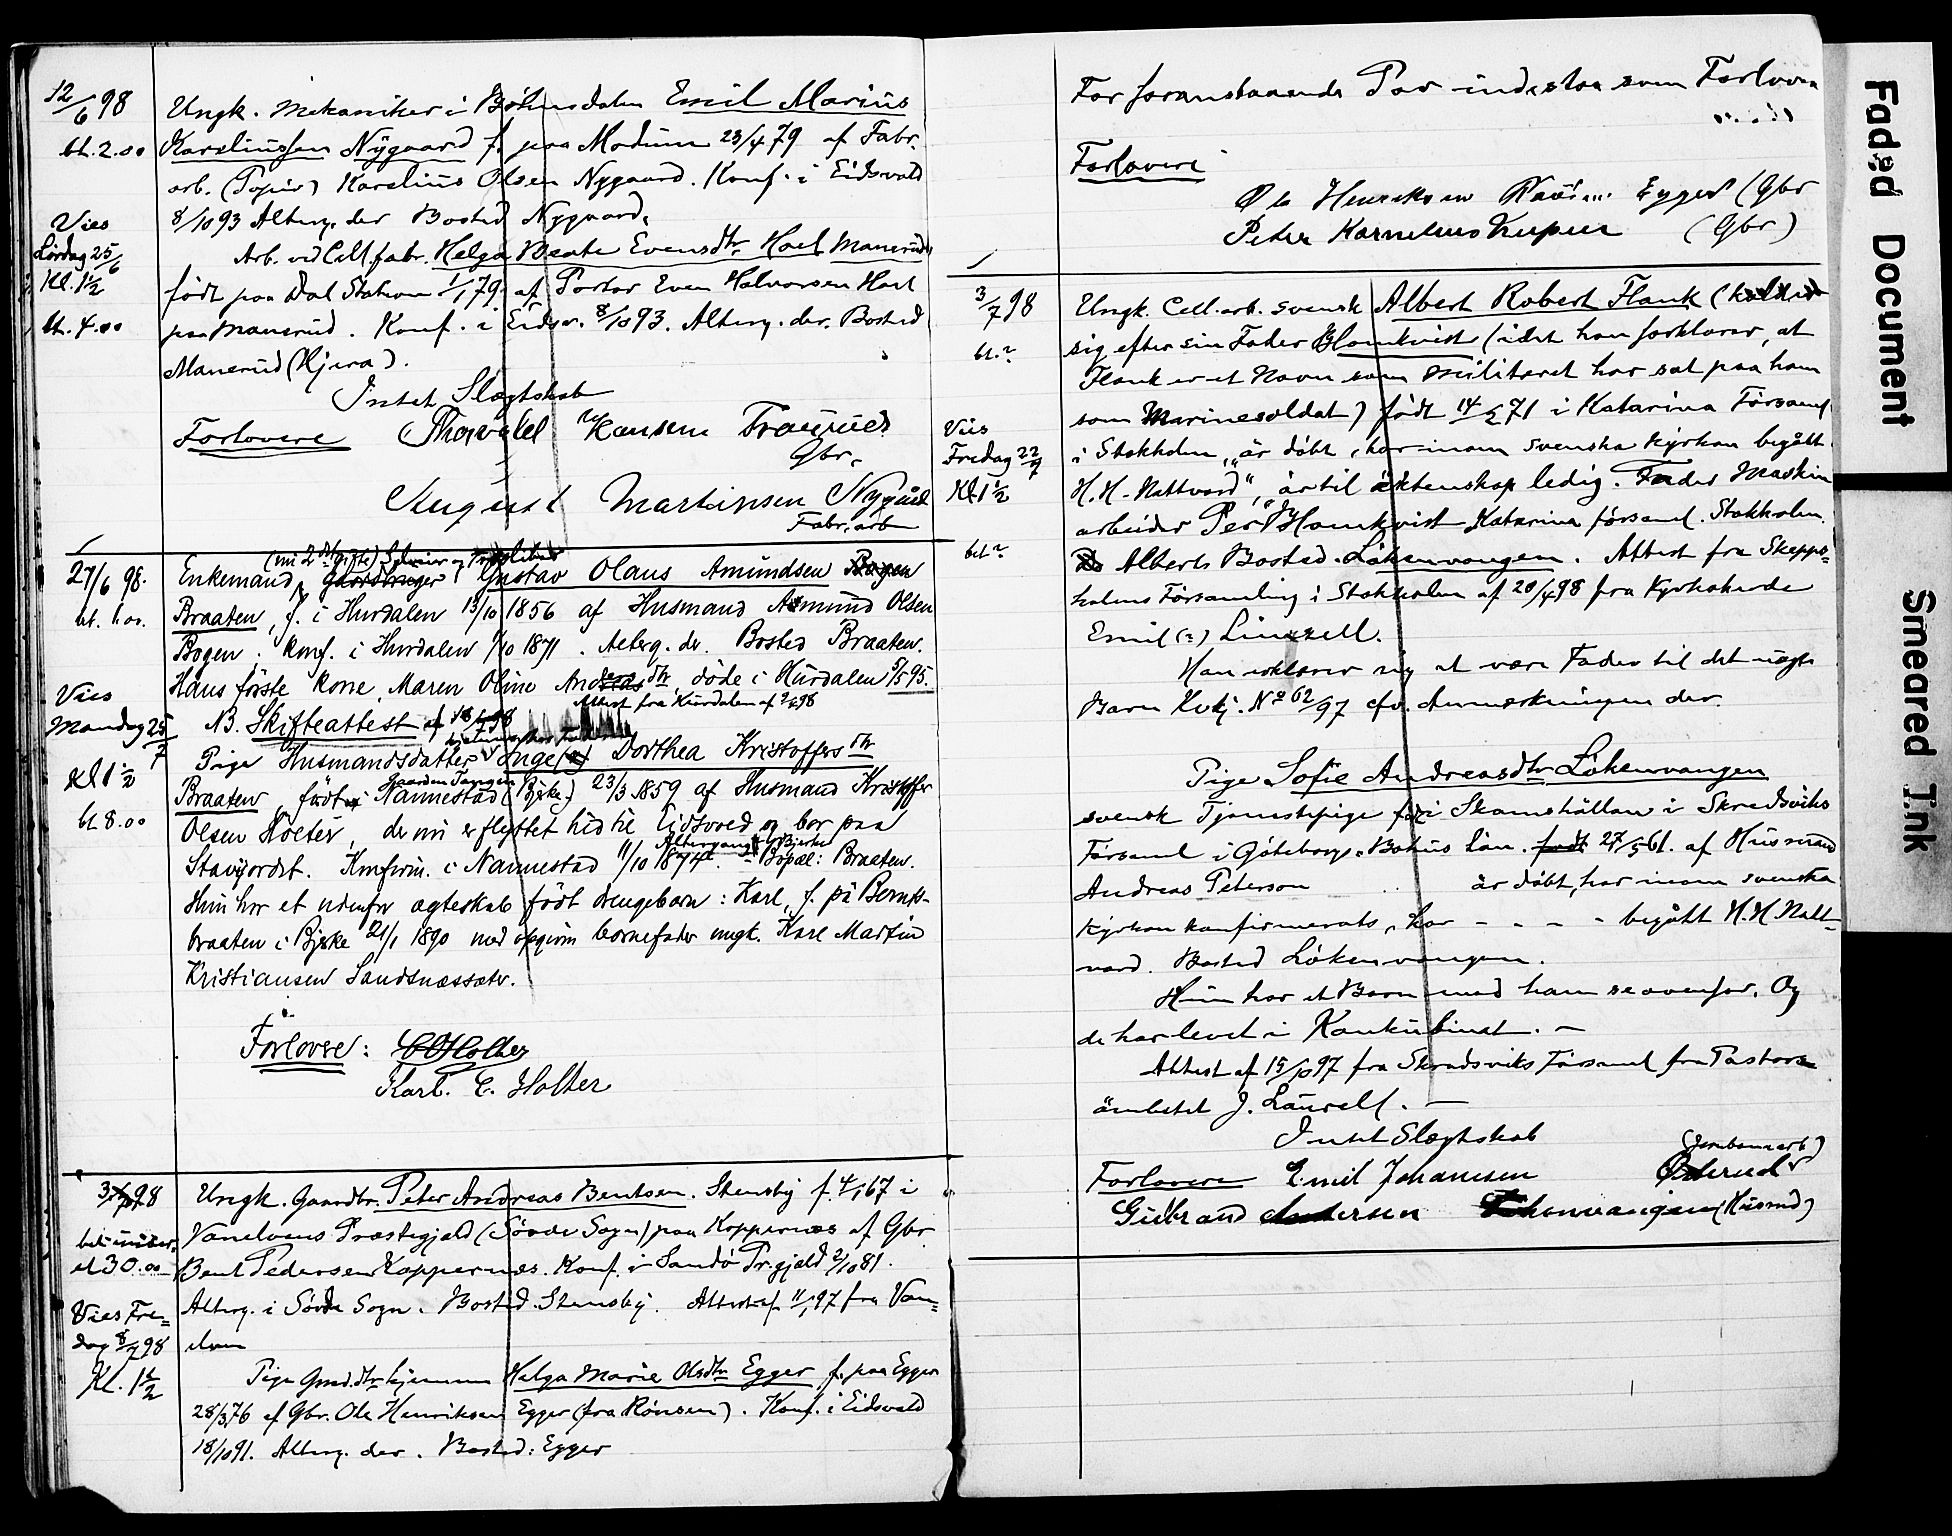 12/6 98
bt. 2.00
Ungk. Mekaniker i Bøhnsdalen Emil Marius
Kareliussen Nygaard f. paa Modum 23/4 79 af Fabr.
arb. (Papir) Karelius Olsen Nygaard. Konf. i Eidsvold
8/10 93 Alterg. der Bosted Nygaard.
Vies
Lørdag 25/6
Kl. 1 1/2
bt. 4.00
Arb. ved Cell.fabr. Helga Beate Evensdtr. Hoel Manerud
født paa Dal Station 1/1 79 af Portør Even Halvorsen Hoel
paa Manerud. Konf. i Eidsv. 8/10 93. Alterg. der. Bosted
Manerud (Hjera).
Intet Slægtskab
Forlovere Thorvald Hansen Traurud
Gbr.
August Martinsen Nygård
Fabr. arb
27/6 98.
bt. 1.00.
(nu 2den gifte)
Enkemand, Gaardbruger Gustav Olaus Amundsen Bogen
Braaten, f. i Hurdalen 13/10 1856 af Husmand Amund Olsen
Bogen. Konf. i Hurdalen 1/10 1871. Alterg. der. Bosted Braaten.
Hans første kone Maren Oline døde i Hurdalen 5/5 95.
Attest fra Hurdalen af
NB. Skifteattest af
Vies
Mandag 25/7
Kl 1 1/2
bt 8.00
Pige Husmandsdatter Inge Dorthea Kristoffersdtr
Gaarden Tangen
Braaten, født i Nannestad (Bjerke) 23/3 1859 af Husmand Kristoffer
Olsen Holter, der nu er flyttet hid til Eidsvold og bor paa
Altergang i Bjerke
Stavjordet. Konfirm. i Nannestad 11/10 1874. - Bopæl: Braaten.
Hun har et udenfor ægteskab født drengebarn: Karl, f. på Bernts-
braaten i Bjerke 21/1 1890 med opgiven barnefader ungk. Karl Martin
Kristiansen Sandsnessæter.
Forlovere: C Holter
Karl. E. Holter
3/7 98
Ungk. Gaardbr. Peter Andreas Bentsen. Stensby f. 4/1 67 i
Vanelvens Præstegjæld (Søvde Sogn) paa Koppernæs af Gbr
et 30.00
Bent Pedersen Koppernæs. Konf. i Sandø Pr.gjæld 2/10 81.
Vies Fre=
dag 8/7 98
Kl. 1 1/2
Alterg. i Søvde Sogn. Bosted Stensby. Attest af 11/1 97 fra Van=
elven
Pige Grd.dtr hjemme Helga Marie Olsdtr Egger f. paa Egger
28/3 76 af Gbr. Ole Henriksen Egger (fra Rønsen). Konf. i Eidsvold
18/10 91. Alterg. der. Bosted: Egger
For foranstaaende Par indestaa som Forlovere
Forlovere
Ole Henriksen Egger (Gbr
Peter Kornelius (Gbr)
3/7 98
bt. ?
Ungk. Cell.arb. svensk Albert Robert Flank (kaldte
sig efter sin Fader Blomkvist (idet han forklarer, at
Flank er et Navn som Militæret har sat paa ham
som Marinesoldat) født 14/2 71 i Katarina Församl
Viis
Fredag 22/7
Kl. 1 1/2
bet ?
i Stokholm, "är döbt, har inom svenska kyrkan begått
H. H. Nattvard", är til äktenskap ledig. Fader Maskin
arbeider Per Blomkvist Katarina församl. Stokholm.
Alberts Bosted. Løkenvangen. Attest fra Skepps=
holms Församling i Stokholm af 20/4 98 fra Kyrkoherde
Emil (?) Linzell.
Han erklærer sig at være Fader til det uægte
Barn Kvkj. No 62/97 cfr. Anmærkningen der.
Pige Sofie Andreasdtr Løkenvangen
svensk Tjenestepige f. i Skamshällan i Skredsviks
Församl i Göteborg o Bohus län. født 27/5 61. af Husmand
Andreas Peterson är döbt, har inom svenska
kyrkan konfirmerats, har - - - begått H. H Natt=
vard. Bosted Løkenvangen.
Hun har et Barn med ham se ovenfor. Og
de har levet i Konkubinat. —
Attest af 15/10 97 fra Skredsviks Församl fra Pastors
ämbetet J. Laurell. —
Intet Slægtskab
(Jernbanearb)
Forlovere Emil Johannesen Østerud
Gulbrand Andersen Løkenvangen (Husmd)
Faded Document
Smeared Ink